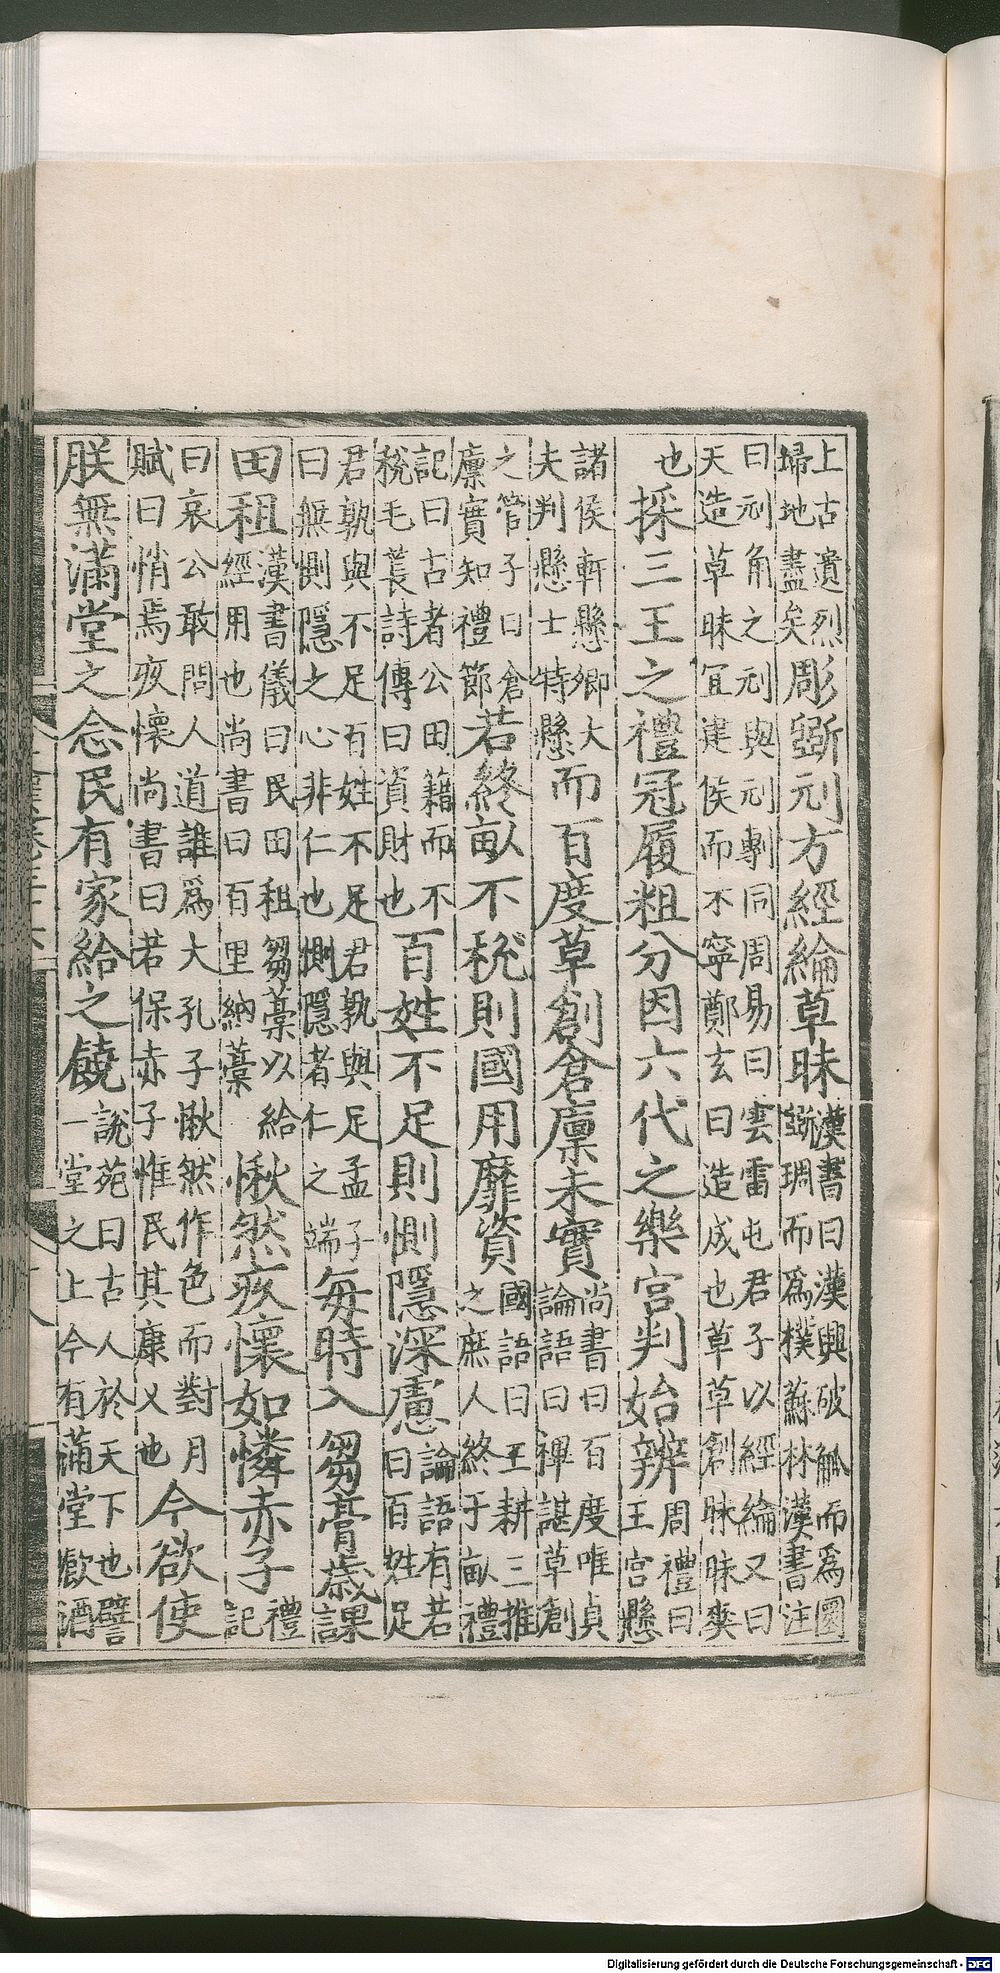 上古遺烈掃地盡矣彫斲刓方經綸草昧漢書曰漢興破觚而爲圜斲琱而爲樸蘇林漢書注
曰刓角之刓與刓剸同周易曰雲雷屯君子以經綸又曰天造草昧宜建侯而不寧鄭玄曰造成也草草創昧昧爽
也採三王之禮冠履粗分因六代之樂宮判始辨周禮曰王宮懸
諸侯軒懸卿大夫判懸士特懸而百度草創倉廩未實尚書曰百度唯貞論語曰禆諶草創
之管子曰倉廩實知禮節若終畝不稅則國用靡資國語曰王耕三推之庶人終于畝禮
記曰古者公田籍而不稅毛萇詩傳曰資財也百姓不足則惻隱深慮論語有若曰百姓足
君孰與不足百姓不足君孰與足孟子曰無惻隱之心非仁也惻隱者仁之端每時入芻膏歲課
田租漢書儀曰民田租芻藁以給經用也尚書曰百里納藁愀然疚懷如憐赤子禮記
曰哀公敢問人道誰爲大孔子愀然作色而對月賦曰悄焉疚懷尚書曰若保赤子惟民其康乂也今欲使
朕無滿堂之念民有家給之饒說苑曰古人於天下也譬一堂之上今有滿堂飲酒
Digitalisierung gefördert durch die Deutsche Forschungsgemeinschaft - DFG